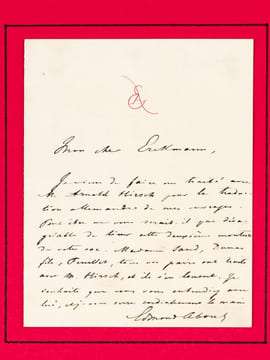 Mon cher Erckmann,
Je viens de faire un traité avec
M. Arnold Hirsch pour la traduc-
tion allemande de mes ouvrages.
Peut être ne vous serait il pas désa-
gréable de tirer cette deuxième mouture
de votre sac. Madame Sand, Dumas
fils, Feuillet, tous vos pairs ont traité
avec M. Hirsch, et ils s'en louent. Je
souhaite que vous vous entendiez avec
lui, et je vous serre cordialement la main
Edmond About